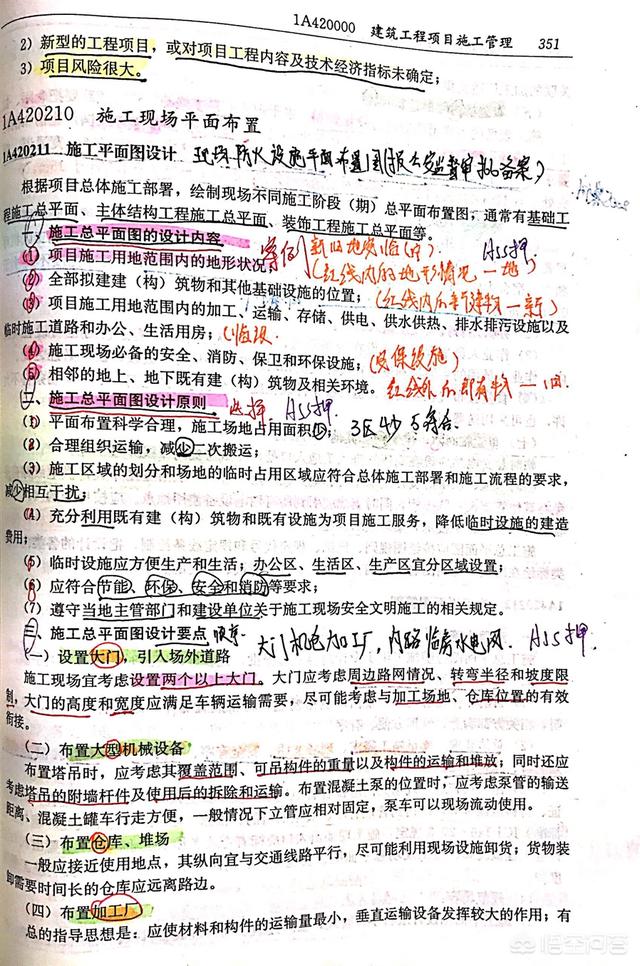 1A420000 建筑工程项目施工管理 351
2）新型的工程项目，或对项目工程内容及技术经济指标未确定；
3）项目风险很大。
1A420210 施工现场平面布置
1A420211 施工平面图设计 现场防火设施平面布置图
根据项目总体施工部署，绘制现场不同施工阶段（期）总平面布置图，通常有基础工
程施工总平面、主体结构工程施工总平面、装饰工程施工总平面等。
一、施工总平面图的设计内容 案例
（1）项目施工用地范围内的地形状况； （红线内的地形情况一地）
（2）全部拟建建（构）筑物和其他基础设施的位置；（红线内
（3）项目施工用地范围内的加工、运输、存储、供电、供水供热、排水排污设施以及
临时施工道路和办公、生活用房；（临设
（4）施工现场必备的安全、消防、保卫和环保设施；
（5）相邻的地上、地下既有建（构）筑物及相关环境。
二、施工总平面图设计原则 选择
（1）平面布置科学合理，施工场地占用面积小； 3区4少5符合.
（2）合理组织运输，减少二次搬运；
（3）施工区域的划分和场地的临时占用区域应符合总体施工部署和施工流程的要求，
减少相互干扰；
（4）充分利用既有建（构）筑物和既有设施为项目施工服务，降低临时设施的建造
费用；
（5）临时设施应方便生产和生活；办公区、生活区、生产区宜分区域设置；
（6）应符合节能、环保、安全和消防等要求；
（7）遵守当地主管部门和建设单位关于施工现场安全文明施工的相关规定。
三、施工总平面图设计要点 大门机电加工厂，内路临房水电网.
（一）设置大门，引入场外道路
施工现场宜考虑设置两个以上大门。大门应考虑周边路网情况、转弯半径和坡度限
制，大门的高度和宽度应满足车辆运输需要，尽可能考虑与加工场地、仓库位置的有效
衔接。
（二）布置大型机械设备
布置塔吊时，应考虑其覆盖范围、可吊构件的重量以及构件的运输和堆放；同时还应
考虑塔吊的附墙杆件及使用后的拆除和运输。布置混凝土泵的位置时，应考虑泵管的输送
距离、混凝土罐车行走方便，一般情况下立管应相对固定，泵车可以现场流动使用。
（三）布置仓库、堆场
一般应接近使用地点，其纵向宜与交通线路平行，尽可能利用现场设施卸货；货物装
卸需要时间长的仓库应远离路边。
（四）布置加工厂
总的指导思想是：应使材料和构件的运输量最小，垂直运输设备发挥较大的作用；有
悟空问答